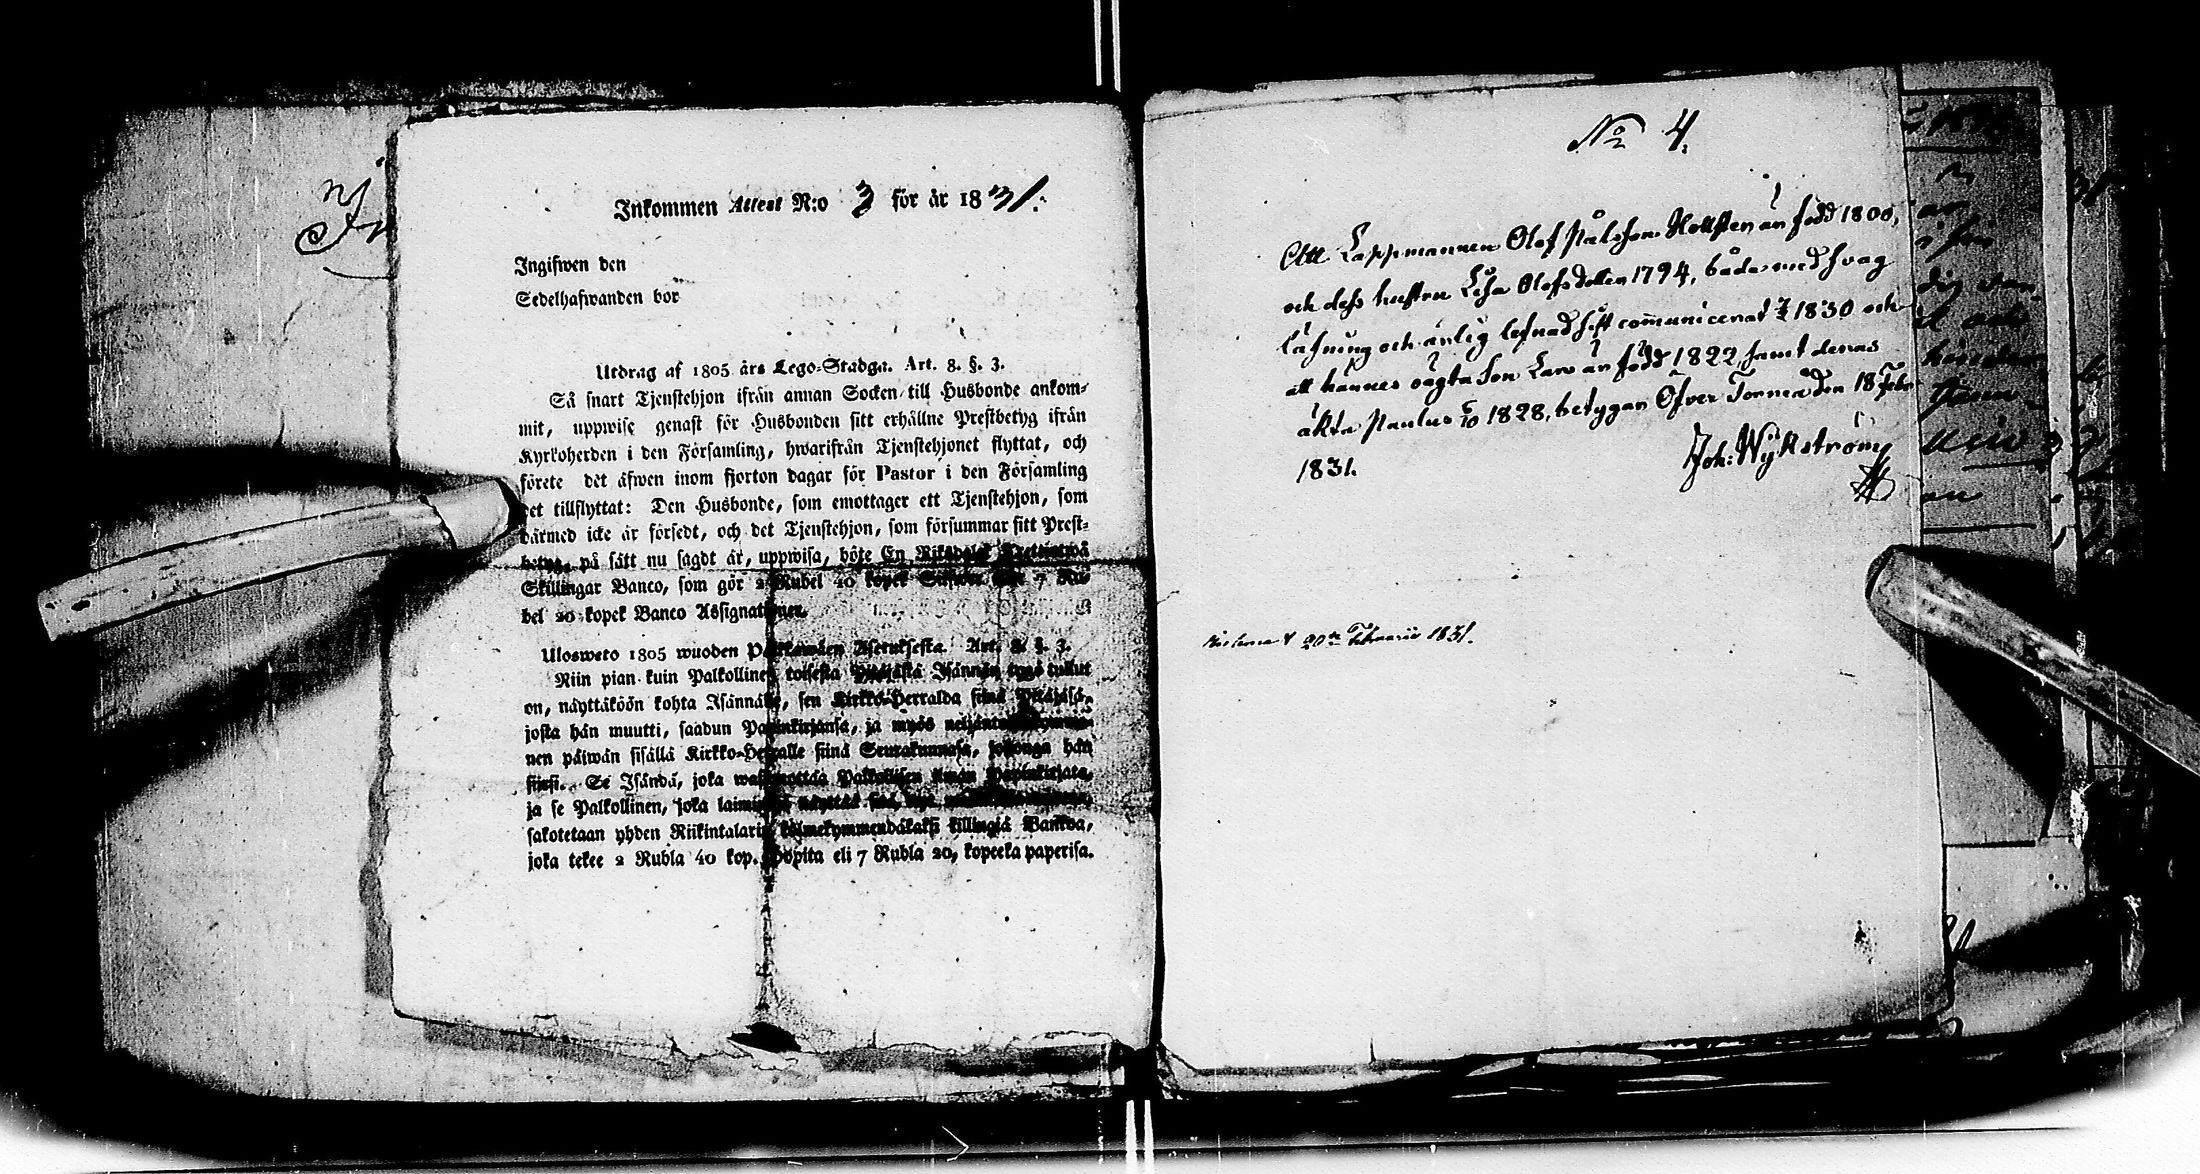 Inkommen Attest N:o 3 för år 1831.
Ingifwen den
Sedelhafwanden bor
Utdrag af 1805 års Lego-Stadga. Art. 8. §. 3.
Så snart Tjenstehjon ifrån annan Socken till Husbonde ankom-
mit, uppwise genast för Husbonden sitt erhållne Prestbetyg ifrån
Kyrkoherden i den Församling, hwarifrån Tjenstehjonet flyttat, och
förete det äfwen inom fjorton dagar för Pastor i den Församling
det tillflyttat: Den Husbonde, som emottager ett Tjenstehjon, som
därmed icke är försedt, och det Tjenstehjon, som försummar sitt Prest-
betyg, på sätt nu sagdt är, uppwisa, böte En Riksdaler Trettiotwå
Skillingar Banco, som gör 2 Rubel 40 kopek Silfwer 7 Ru-
bel 20 kopek Banco Assignationer.
Uloswето 1805 wuoden Palkkawäen Asetuksesta. Art. 8. §. 3.
Niin pian kuin Palkollinen toisesta Pitäjästä Isännän tygö tullut
on, näyttäköön kohta Isännälle, sen Kirkko-Herralda siinä Pitäjäsä,
josta hän muutti, saadun Papinkirjansa, ja myös
nen päiwän sisällä Kirkko-Herralle siinä Seurakunnasa, johonga hän
siirsi. Se Isändä, joka wastaanottaa Palkollisen ilman Papinkirjata,
ja se Palkollinen, joka laimin näyttää
sakotetaan yhden Riikintalarin kolmekymmendäkaksi killingiä Bankoa,
joka tekee 2 Rubla 40 kop. Hopita eli 7 Rubla 20, kopeeka paperisa.
No 4.
Att Lappmannen Olof Pålsson Hollsten är född 1800,
och dess hustru Lisa Olofsdotter 1794, både med svag
läsning och ärlig lefnad sist communicerat 1830 och
att hännes oägta Son Lars är född 1822, samt deras
äkta Paulus 1828, betygar Öfver Torneå den 18 Febr.
1831.
Joh: Wykström
20de Februarii 1831.